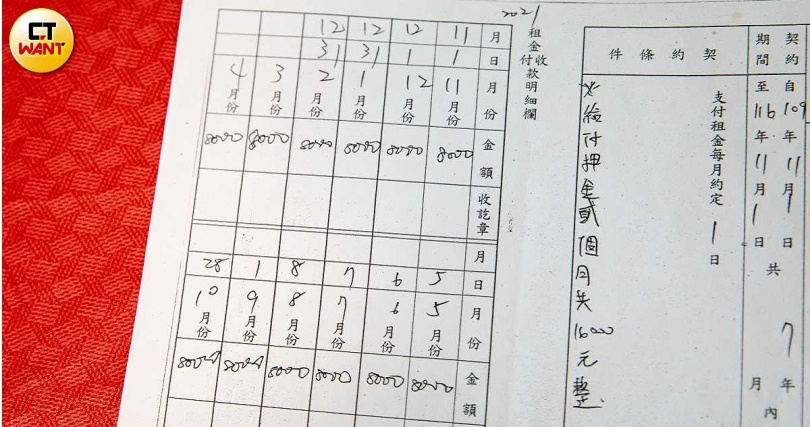 CT
WANT
契約期間
自109年11月1日
至116年11月1日
共7年
月內
契約條件
支付租金每月約定1日
※給付押金貳個月共16000元整
2021
租金收付款明細欄
月 11 12 12 12
日 1 1 31 31
月份 11月份 12月份 1月份 2月份 3月份 4月份
金額 8000 8000 8000 8000 8000 8000
收訖章
月
日 5 6 7 8 1 28
月份 5月份 6月份 7月份 8月份 9月份 10月份
金額 8000 8000 8000 8000 8000 8000